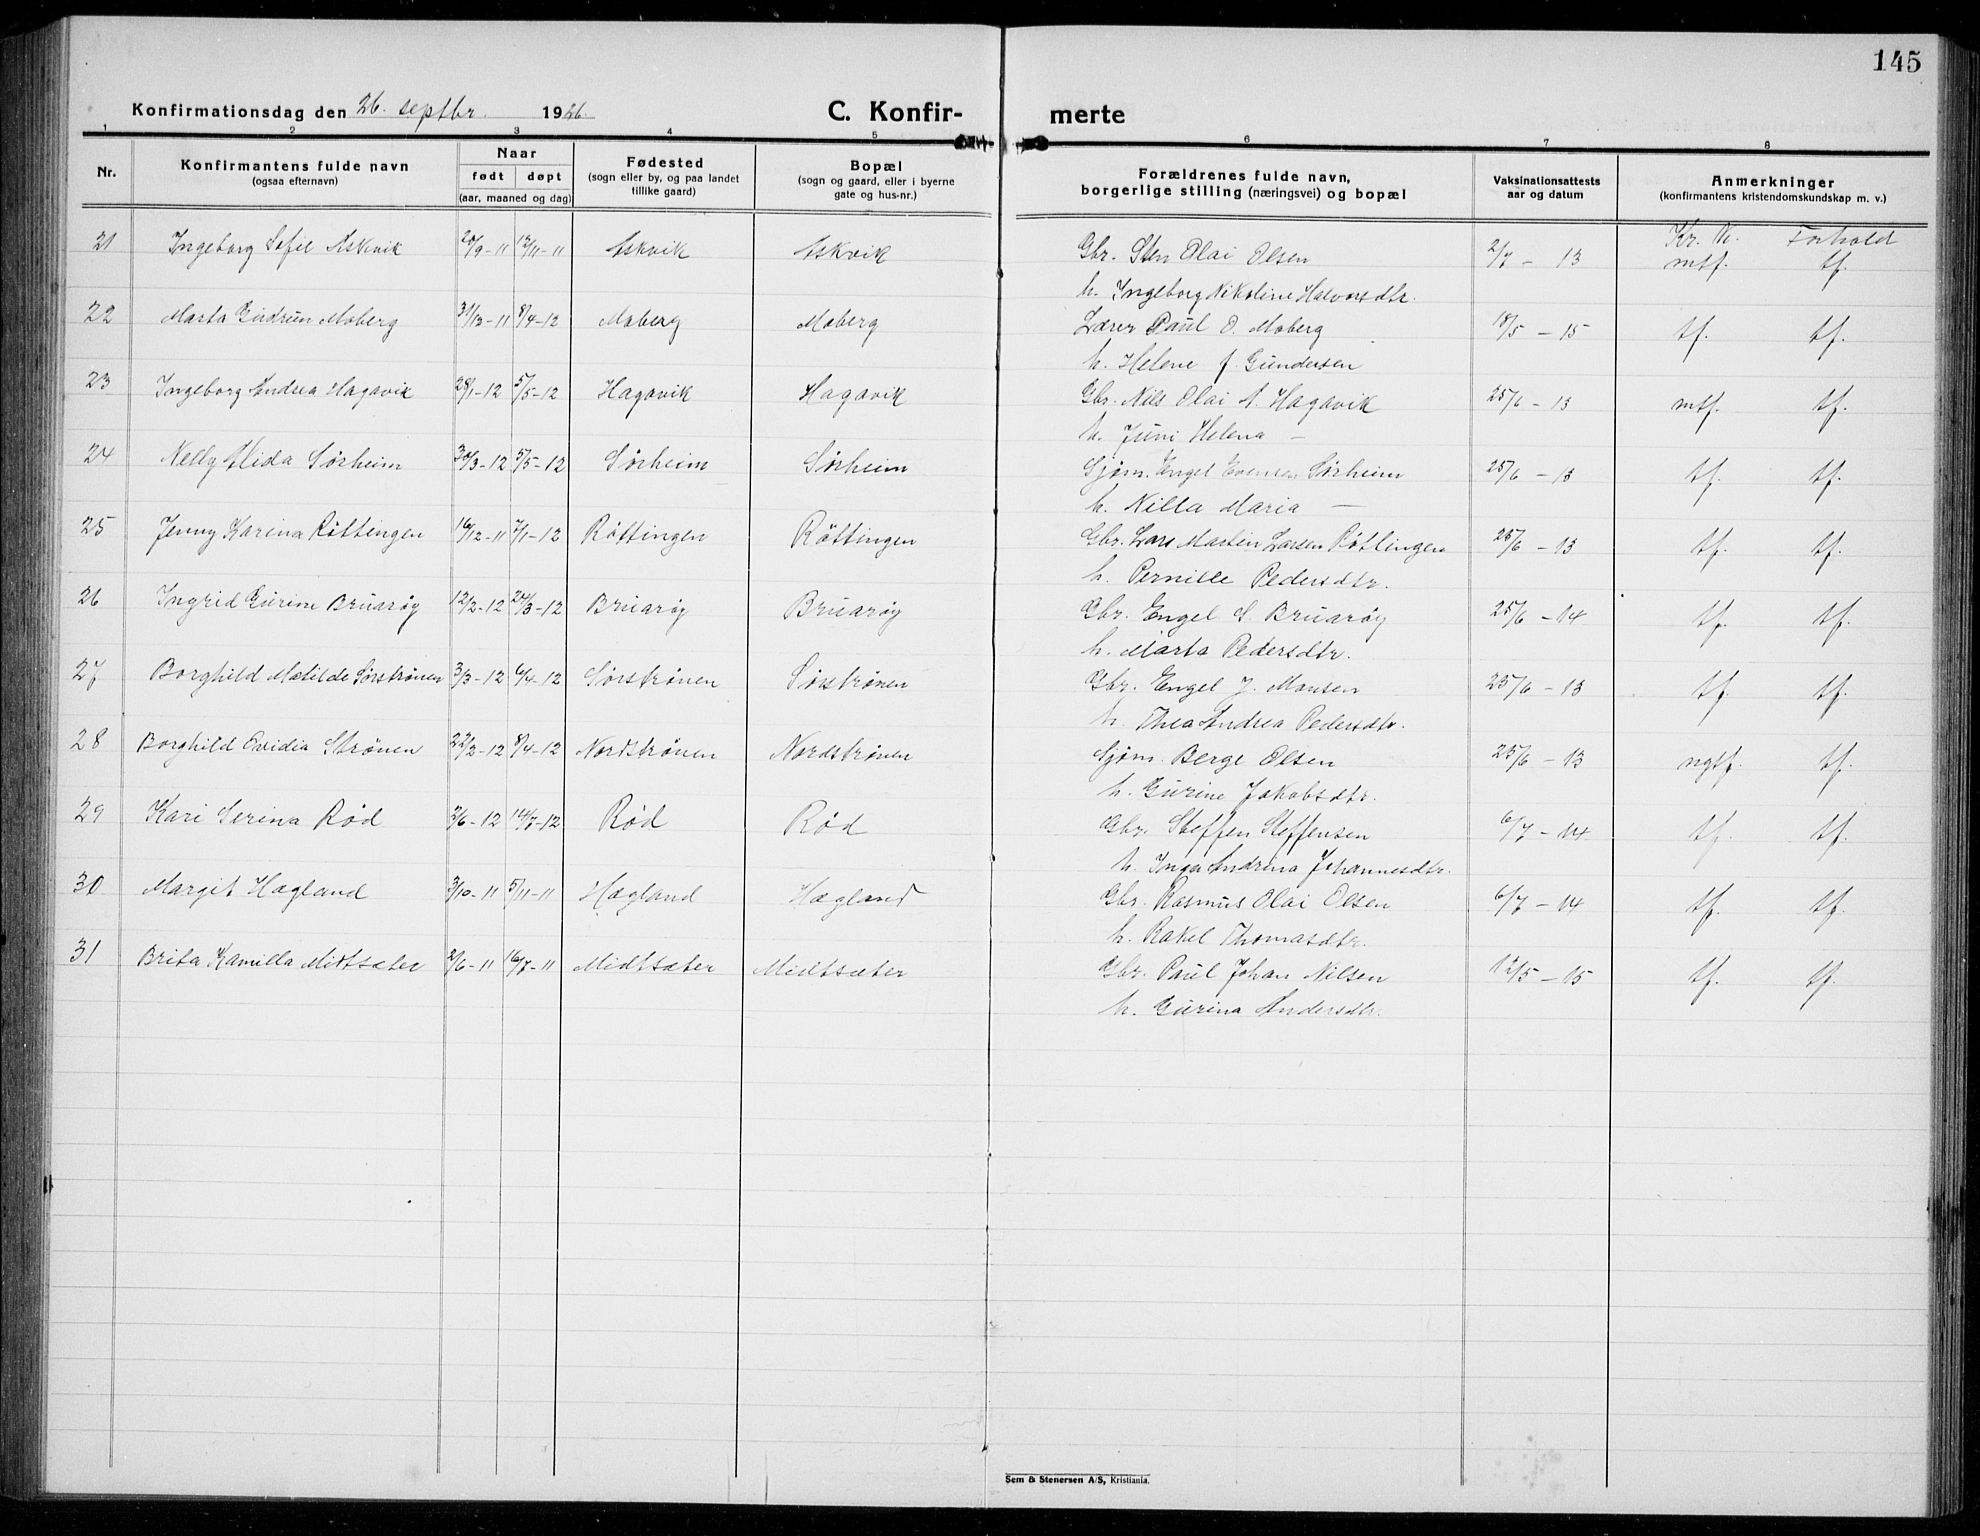 145
Konfirmationsdag den 26. septbr. 1926.
C. Konfirmerte
1 2 3 4 5 6 7 8
Nr. Konfirmantens fulde navn (ogsaa efternavn) Naar født døpt (aar, maaned og dag) Fødested (sogn eller by, og paa landet tillike gaard) Bopæl (sogn og gaard, eller i byerne gate og hus-nr.) Forældrenes fulde navn, borgerlige stilling (næringsvei) og bopæl Vaksinationsattests aar og datum Anmerkninger (konfirmantens kristendomskundskap m. v.)
Kr. K. Forhold
21 Ingeborg Sofie Askvik 20/9-11 12/11-11 Askvik Askvik Gbr. Sten Olai Olsen 2/7 - 13 mtf. tf.
h. Ingeborg Nikoline Halvorsdtr.
22 Marta Gudrun Moberg 31/12-11 8/4-12 Moberg Moberg Lærer Paul O. Moberg 18/5 - 15 tf. tf.
h. Helene f. Gundersen
23 Ingeborg Andrea Hagavik 28/1-12 5/5-12 Hagavik Hagavik Gbr. Nils Olai A. Hagavik 25/6 - 13 mtf. tf.
h. Juni Helena —
24 Nelly Alida Sørheim 30/3-12 5/5-12 Sørheim Sørheim Sjøm. Engel Evensen Sørheim 25/6 - 13 tf. tf.
h. Nilla Maria —
25 Jenny Karina Røttingen 16/12-11 7/1-12 Røttingen Røttingen Gbr. Lars Martin Larsen Røttingen 25/6 - 13 tf. tf.
h. Pernille Pedersdtr.
26 Ingrid Gurine Bruarøy 12/2-12 24/3-12 Bruarøy Bruarøy Gbr. Engel S. Bruarøy 25/6 - 14 tf. tf.
h. Marta Pedersdtr.
27 Borghild Matilde Sørstrønen 3/3-12 6/4-12 Sørstrønen Sørstrønen Gbr. Engel J. Monsen 25/6 - 13 tf. tf.
h. Thea Andrea Pedersdtr.
28 Borghild Ovidia Strønen 22/2-12 8/4-12 Nordstrønen Nordstrønen Sjøm. Berge Olsen 25/6 - 13 ngtf. tf.
h. Gurine Jakobsdtr.
29 Kari Serina Rød 2/6-12 14/7-12 Rød Rød Gbr. Steffen Steffensen 6/7 - 14 tf. tf.
h. Inga Andrina Johannesdtr.
30 Margit Hægland 3/10-11 5/11-11 Hægland Hægland Gbr. Rasmus Olai Olsen 6/7 - 14 tf. tf.
h. Rakel Thomasdtr.
31 Brita Kamilla Midtsæter 2/6-11 16/7-11 Midtsæter Midtsæter Gbr. Paul Johan Nilsen 12/5 - 15 tf. tf.
h. Gurina Andersdtr.
Sem & Stenersen A/S, Kristiania.